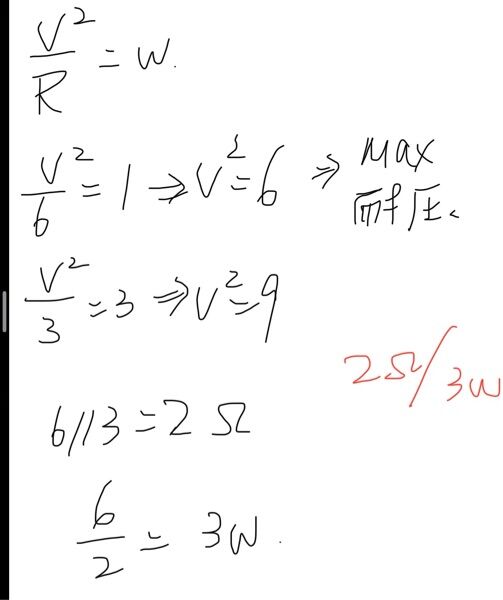 V²/R = W.
V²/6 = 1 ⇒ V² = 6 ⇒ Max
耐圧。
V²/3 = 3 ⇒ V² = 9
2Ω/3W
6//3 = 2 Ω
6/2 = 3W.